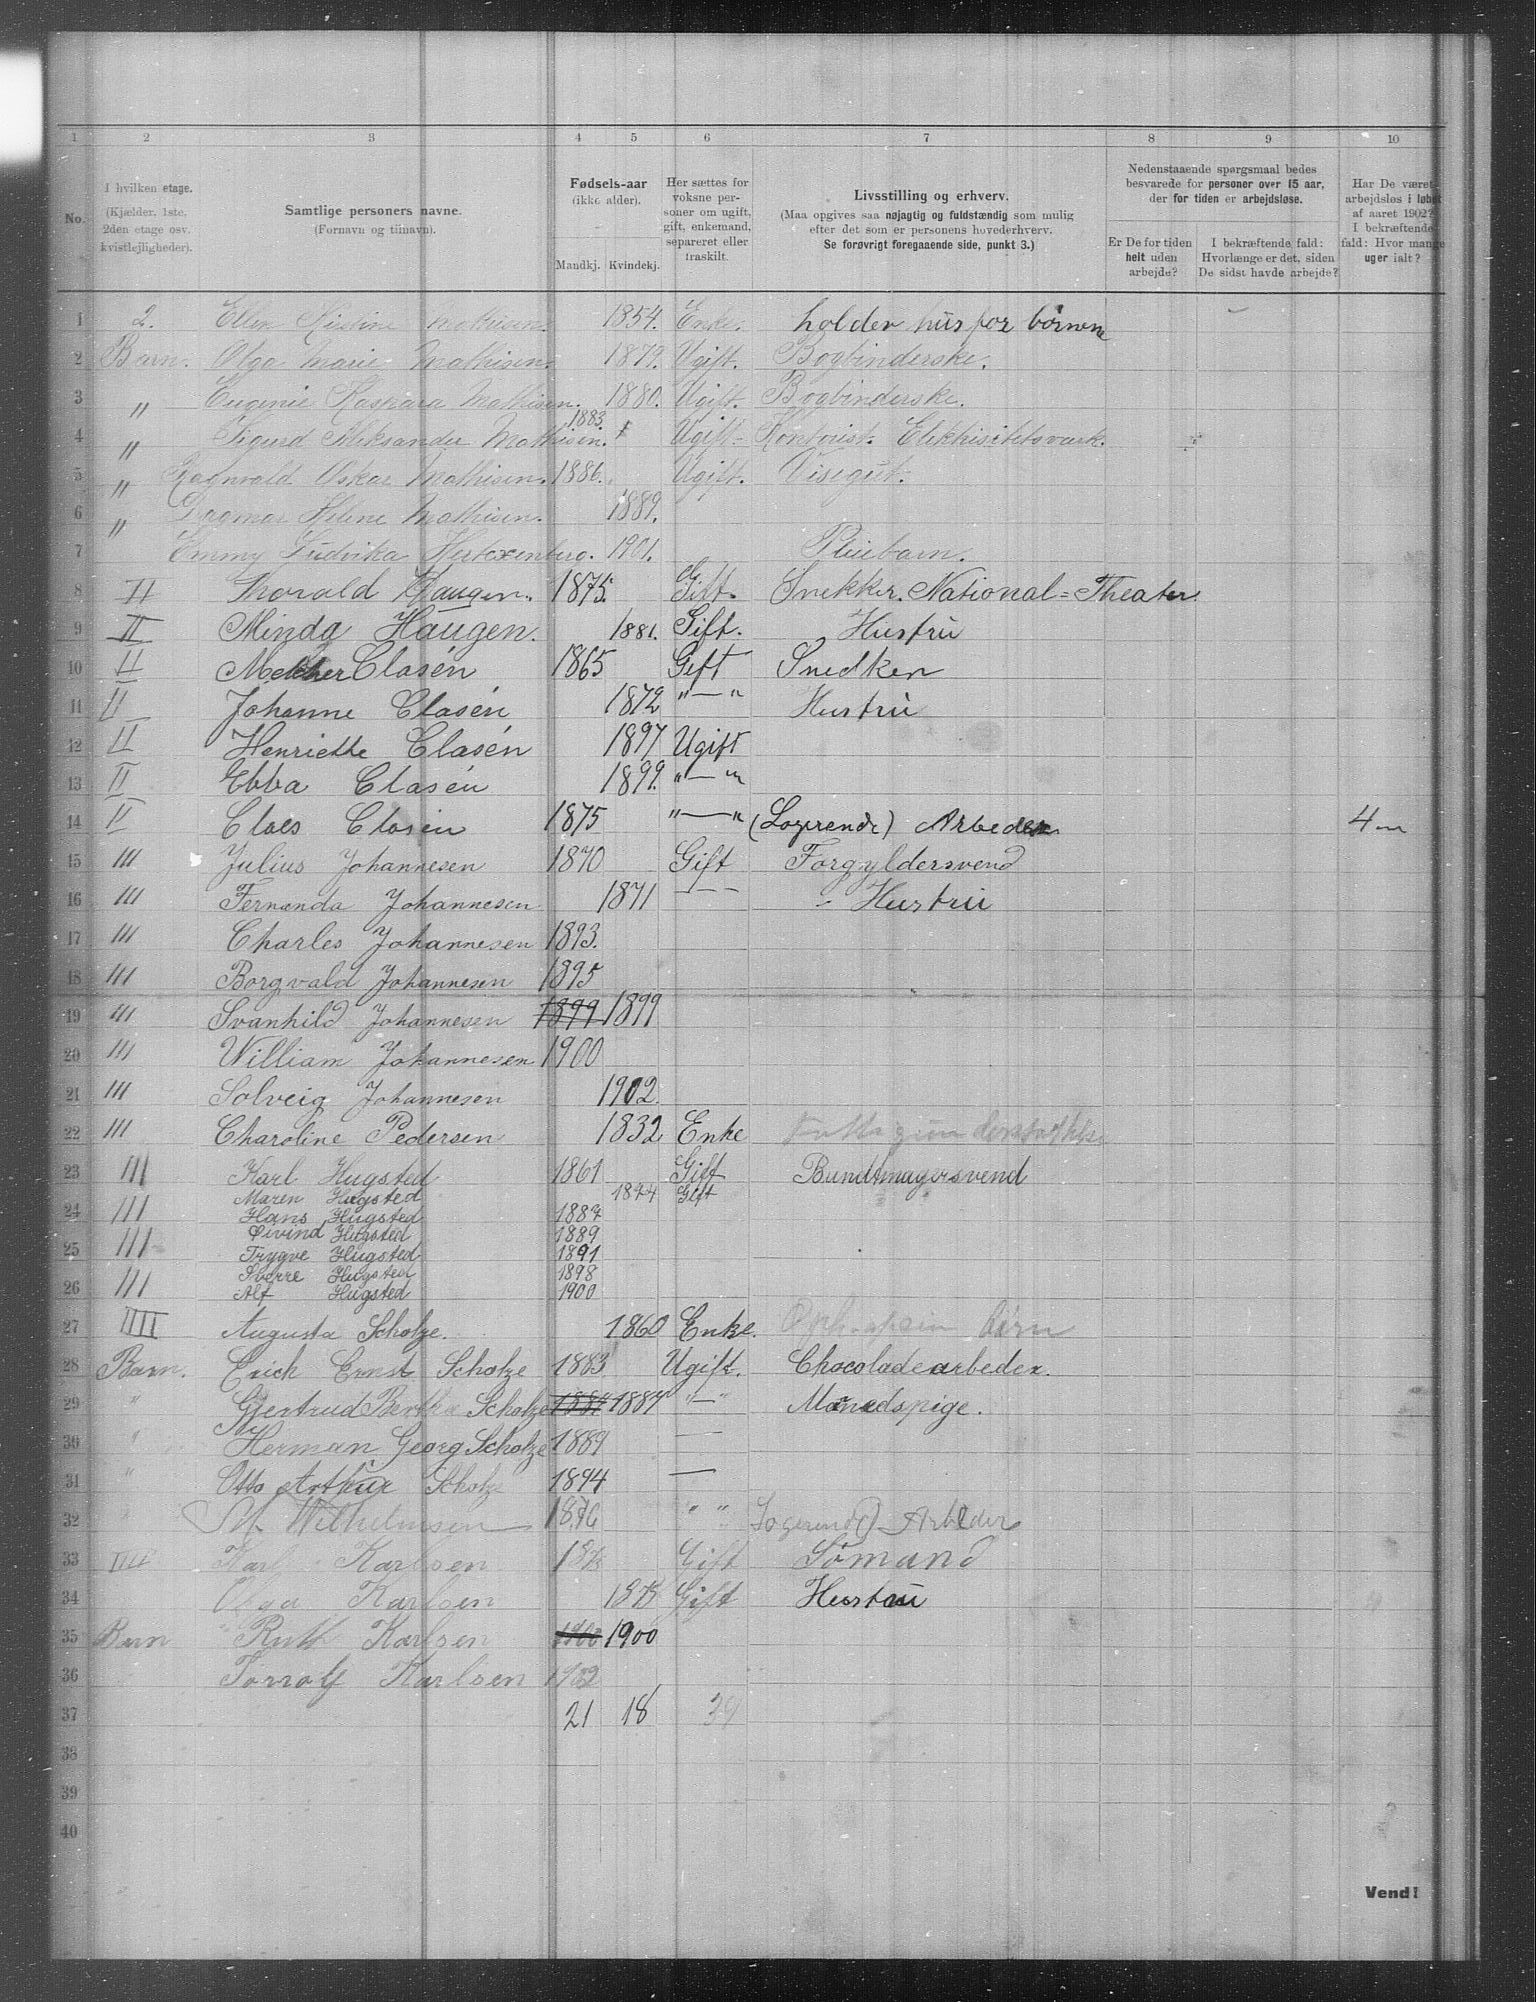 1 2 3 4 5 6 7 8 9 10
No. I hvilken etage. (Kjælder, 1ste, 2den etage osv. kvistlejligheder). Samtlige personers navne. (Fornavn og tilnavn). Fødsels-aar (ikke alder). Mandkj. Kvindekj. Her sættes for voksne personer om ugift, gift, enkemand, separeret eller fraskilt. Livsstilling og erhverv. (Maa opgives saa nøjagtig og fuldstændig som mulig efter det som er personens hovederhverv. Se forøvrigt foregaaende side, punkt 3.) Nedenstaaende spørgsmaal bedes besvarede for personer over 15 aar, der for tiden er arbejdsløse. Er De for tiden helt uden arbejde? I bekræftende fald: Hvorlænge er det, siden De sidst havde arbejde? Har De været arbejdsløs i løbet af aaret 1902? I bekræftende fald: Hvor mange uger ialt?
1 2. Ellen Kirstine Mathisen. 1854. Enke. holder hus for börnene
2 Barn. Olga Marie Mathisen. 1879. Ugift. Bogbinderske.
3 " Eugenie Mathisen. 1880. Ugift. Bogbinderske.
4 " Sigurd Aleksander Mathisen. 1883. Ugift Elektrisitetsværk.
5 " Ragnvald Oskar Mathisen. 1886. Ugift. Visegut.
6 " Dagmar Helene Mathisen. 1889.
7 Emmy Ludvika 1901. Pleiebarn.
8 II Thorald Haugen. 1875. Gift. Snekker. National=Theater.
9 II Minda Haugen. 1881. Gift. Hustru
10 II Melcher Clasén 1865 Gift Snedker
11 II Johanne Clasén 1872 "—" Hustru
12 II Henriette Clasén 1897 Ugift
13 II Ebba Clasén 1899. "—"
14 II Claes Clasén 1875 "—" (Logerende) Arbeder 4
15 III Julius Johannesen 1870 Gift Forgyldersvend
16 III Fernanda Johannesen 1871 — Hustru
17 III Charles Johannesen 1893.
18 III Borgvald Johannesen 1895
19 III Svanhild Johannesen 1899 1899
20 III William Johannesen 1900
21 III Solveig Johannesen 1902.
22 III Charoline Pedersen 1832 Enke
23 III Karl Hugsted 1861 Gift Bundtmagersvend
Maren Hugsted Gift
24 III Hans Hugsted 1887
Øivind Hugsted 1889
25 III Trygve Hugsted 1891
Sverre Hugsted 1898
26 III Alf Hugsted 1900
27 IIII Augusta Scholze. 1860 Enke.
28 Barn. Erick Ernst Scholze 1883 Ugift. Chocoladearbeder.
29 " Gjertrud Bertha Scholze 1887 1887 "—" Manedspige.
30 " Herman Georg Scholze 1889 —
31 " Otto Arthur Scholze 1894 —
32 " Wilhelmsen 1876 " " Logerende Arbeder
33 IIII Karl Karlsen Gift Sömand
34 Olga Karlsen Gift Hustru
35 Barn Ruth Karlsen 1900 1900
36 Karlsen 1902
37 21 18 39
38
39
40
Vend!